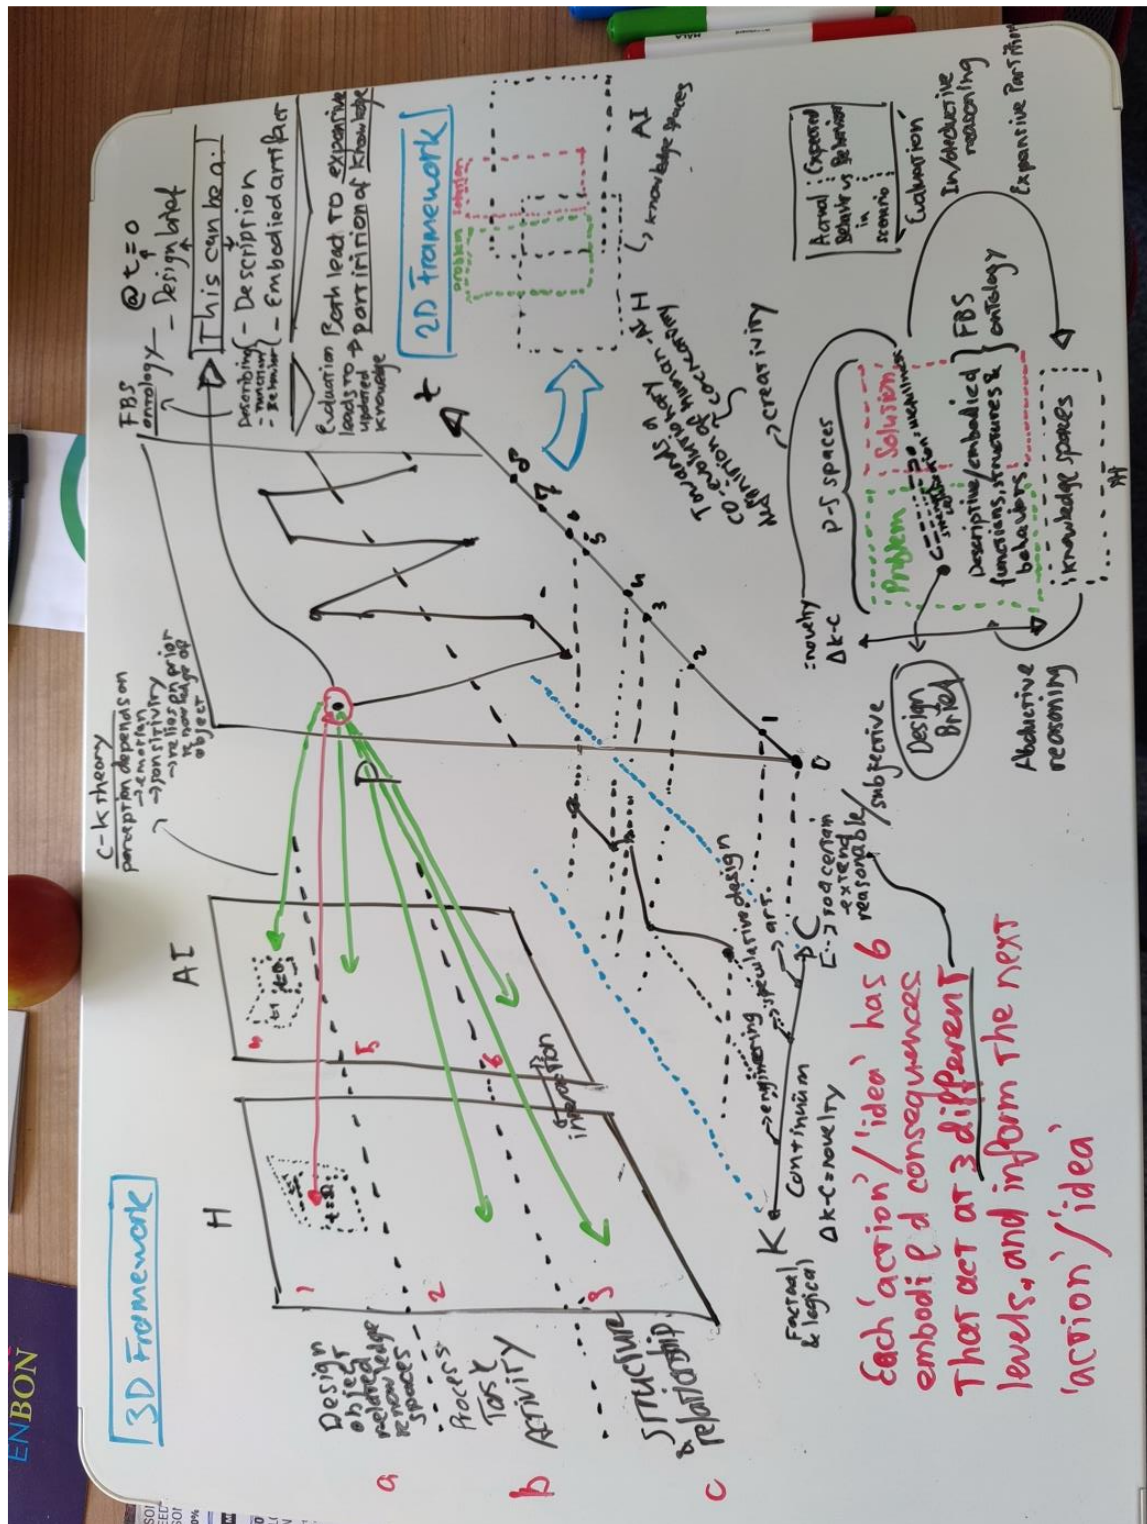 ENBON
3D Framework
H
AI
1
2
3
4
5
6
t=0
t-1
t=0
Design
object
related
knowledge
spaces
a
Process
Task
Activity
b
Structure
& relationship
c
interaction
P
C-K theory
perception depends on
→ emotion
→ sensitivity
→ relies on prior
knowledge of
object
FBS
ontology
@ t = 0
- Design brief
This can be a:
- Description
- Embodied artifact
Describing
- function
- Behavior
Evaluation
leads to
updated
knowledge
Both lead to expansive
partitition of knowledge
2D Framework
problem
solution
AI
↳ knowledge spaces
Towards a
co-evolutionary
definition of human-AI
co-creativity
H
→ creativity
t
0
1
2
3
4
5
6
7
8
K
Factual
& logical
Continuum
ΔK-C = novelty
→ engineering
→ speculative design
→ art
C
[...→ to a certain
extend
reasonable/
subjective
Each 'action'/'idea' has 6
embodied consequences
That act at 3 different
levels, and inform the next
'action'/'idea'
= novelty
ΔK-C
P-S spaces
Problem
Solution
Descriptive/embodied
functions, structures &
behaviors.
FBS
ontology
knowledge spaces
Design
Brief
Abductive
reasoning
Actual
Behavior
in
scenario
vs
Expected
Behavior
Evaluation
reasoning
Expansive Partition